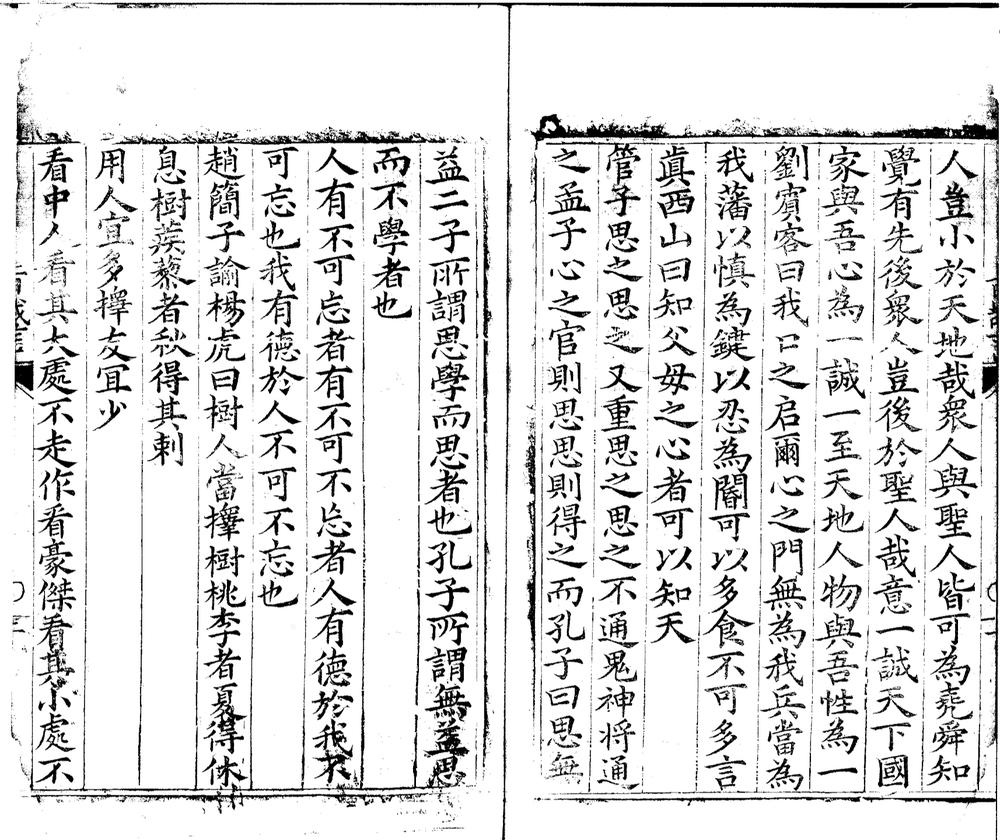 人豈小於天地哉衆人與聖人皆可為堯舜知
覺有先後衆人豈後於聖人哉意一誠天下國
家與吾心為一誠一至天地人物與吾性為一
劉賓客曰我口之启爾心之門無為我兵當為
我藩以慎為鍵以忍為閽可以多食不可多言
真西山曰知父母之心者可以知天
管子思之思之又重思之思之不通鬼神将通
之孟子心之官則思思則得之而孔子曰思無
益二子所謂思學而思者也孔子所謂無益思
而不學者也
人有不可忘者有不可不忘者人有德於我不
可忘也我有德於人不可不忘也
趙簡子諭楊虎曰樹人當擇樹桃李者夏得休
息樹蒺藜者秋得其刺
用人宜多擇友宜少
看中人看其大處不走作看豪傑看其小處不